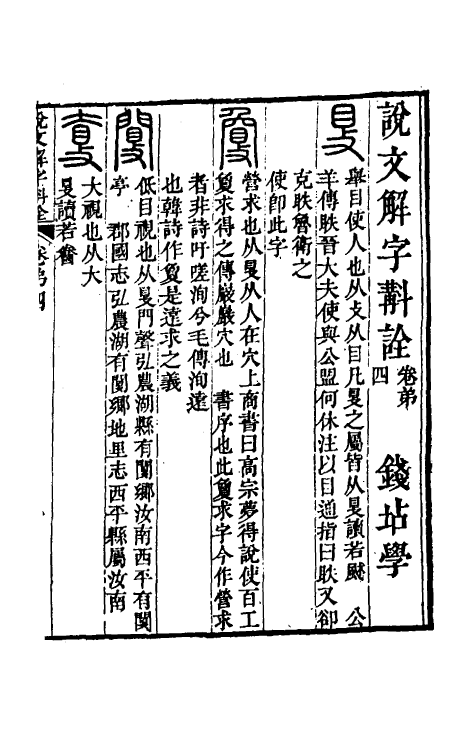 說文解字斠詮 卷弟四 錢坫學
𡕥 舉目使人也从攴从目凡𡕥之屬皆从𡕥讀若䫻 公
羊傳眣晉大夫使與公盟何休注以目通指曰眣又郤
克眣魯衛之
使卽此字
夐 營求也从𡕥从人在穴上商書曰高宗夢得說使百工
夐求得之傅巖巖穴也 書序也此夐求字今作營求
者非詩吁嗟洵兮毛傳洵遠
也韓詩作夐是遠求之義
閺 低目視也从𡕥門聲弘農湖縣有閺鄉汝南西平有閺
亭 郡國志弘農湖有閺鄉地里志西平縣屬汝南
大視也从大
𡕥讀若
說文解字斠詮 卷弟四